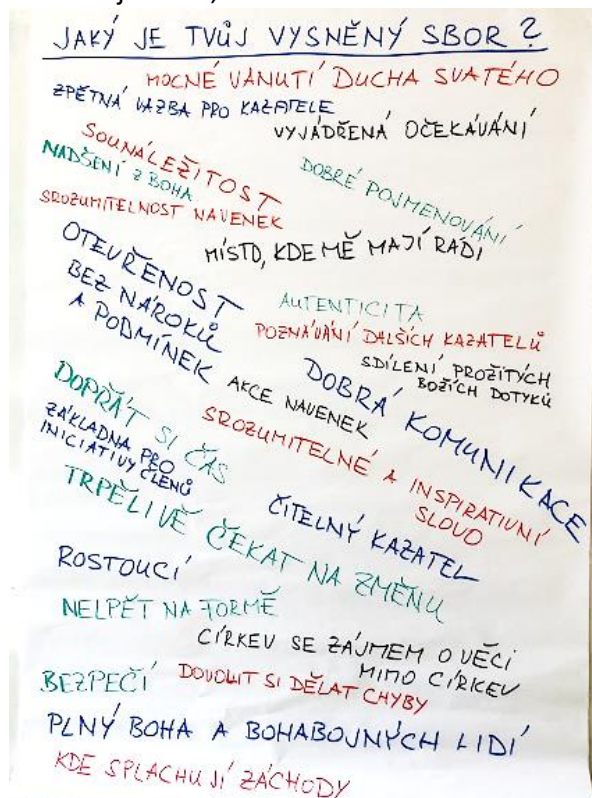 JAKÝ JE TVŮJ VYSNĚNÝ SBOR?
MOCNÉ VANUTÍ DUCHA SVATÉHO
ZPĚTNÁ VAZBA PRO KAZATELE
VYJÁDŘENÁ OČEKÁVÁNÍ
SOUNÁLEŽITOST
NADŠENÍ Z BOHA
DOBRÉ POJMENOVÁNÍ
SROZUMITELNOST NAVENEK
MÍSTO, KDE MĚ MAJÍ RÁDI
OTEVŘENOST
BEZ NÁROKŮ
A PODMÍNEK
AUTENTICITA
POZNÁVÁNÍ DALŠÍCH KAZATELŮ
SDÍLENÍ PROŽITÝCH
BOŽÍCH DOTYKŮ
DOBRÁ KOMUNIKACE
AKCE NAVENEK
DOPŘÁT SI ČAS
SROZUMITELNÉ A INSPIRATIVNÍ
SLOVO
ZÁKLADNA PRO
INICIATIVY ČLENŮ
TRPĚLIVĚ ČEKAT NA ZMĚNU
ČITELNÝ KAZATEL
ROSTOUCÍ
NELPĚT NA FORMĚ
CÍRKEV SE ZÁJMEM O VĚCI
MIMO CÍRKEV
BEZPEČÍ
DOVOLIT SI DĚLAT CHYBY
PLNÝ BOHA A BOHABOJNÝCH LIDÍ
KDE SPLACHUJÍ ZÁCHODY